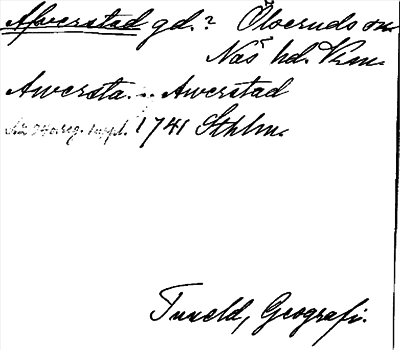 Afverstad gd.? Ölseruds sn.
Näs hd. Vrm.
Awersta. Awerstad
1741 Sthlm.
Tuneld, Geografi.